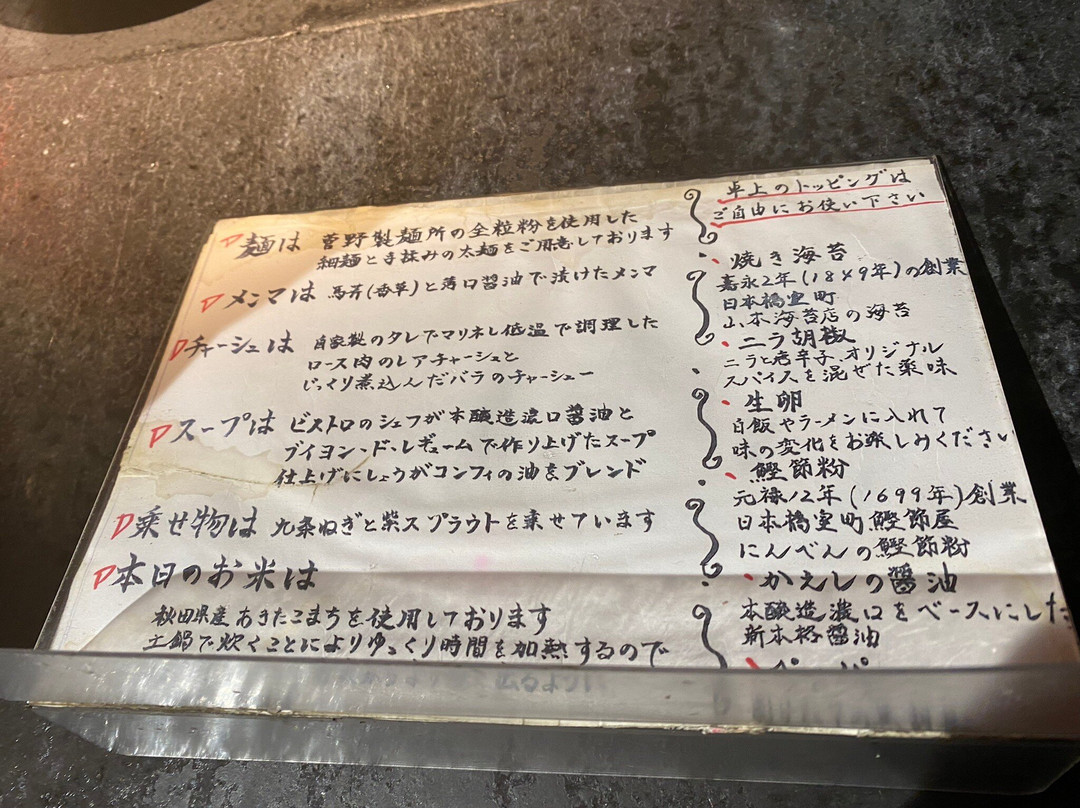 麺は 菅野製麺所の全粒粉を使用した
細麺と手揉みの太麺をご用意しております
メンマは 馬芹(香草)と薄口醤油で漬けたメンマ
チャーシュは 自家製のタレでマリネし低温で調理した
ロース肉のレアチャーシュと
じっくり煮込んだバラのチャーシュー
スープは ビストロのシェフが本醸造濃口醤油と
ブイヨン・ド・レギュームで作り上げたスープ
仕上げにしょうがコンフィの油をブレンド
乗せ物は 九条ねぎと紫スプラウトを乗せています
本日のお米は
秋田県産あきたこまちを使用しております
土鍋で炊くことによりゆっくり時間を加熱するので
卓上のトッピングは
ご自由にお使い下さい
・焼き海苔
嘉永2年(1849年)の創業
日本橋室町
山本海苔店の海苔
・ニラ胡椒
ニラと唐辛子、オリジナル
スパイスを混ぜた薬味
・生卵
白飯やラーメンに入れて
味の変化をお楽しみください
・鰹節粉
元禄12年(1699年)創業
日本橋室町鰹節屋
にんべんの鰹節粉
・かえしの醤油
本醸造濃口をベースにした
新本格醤油